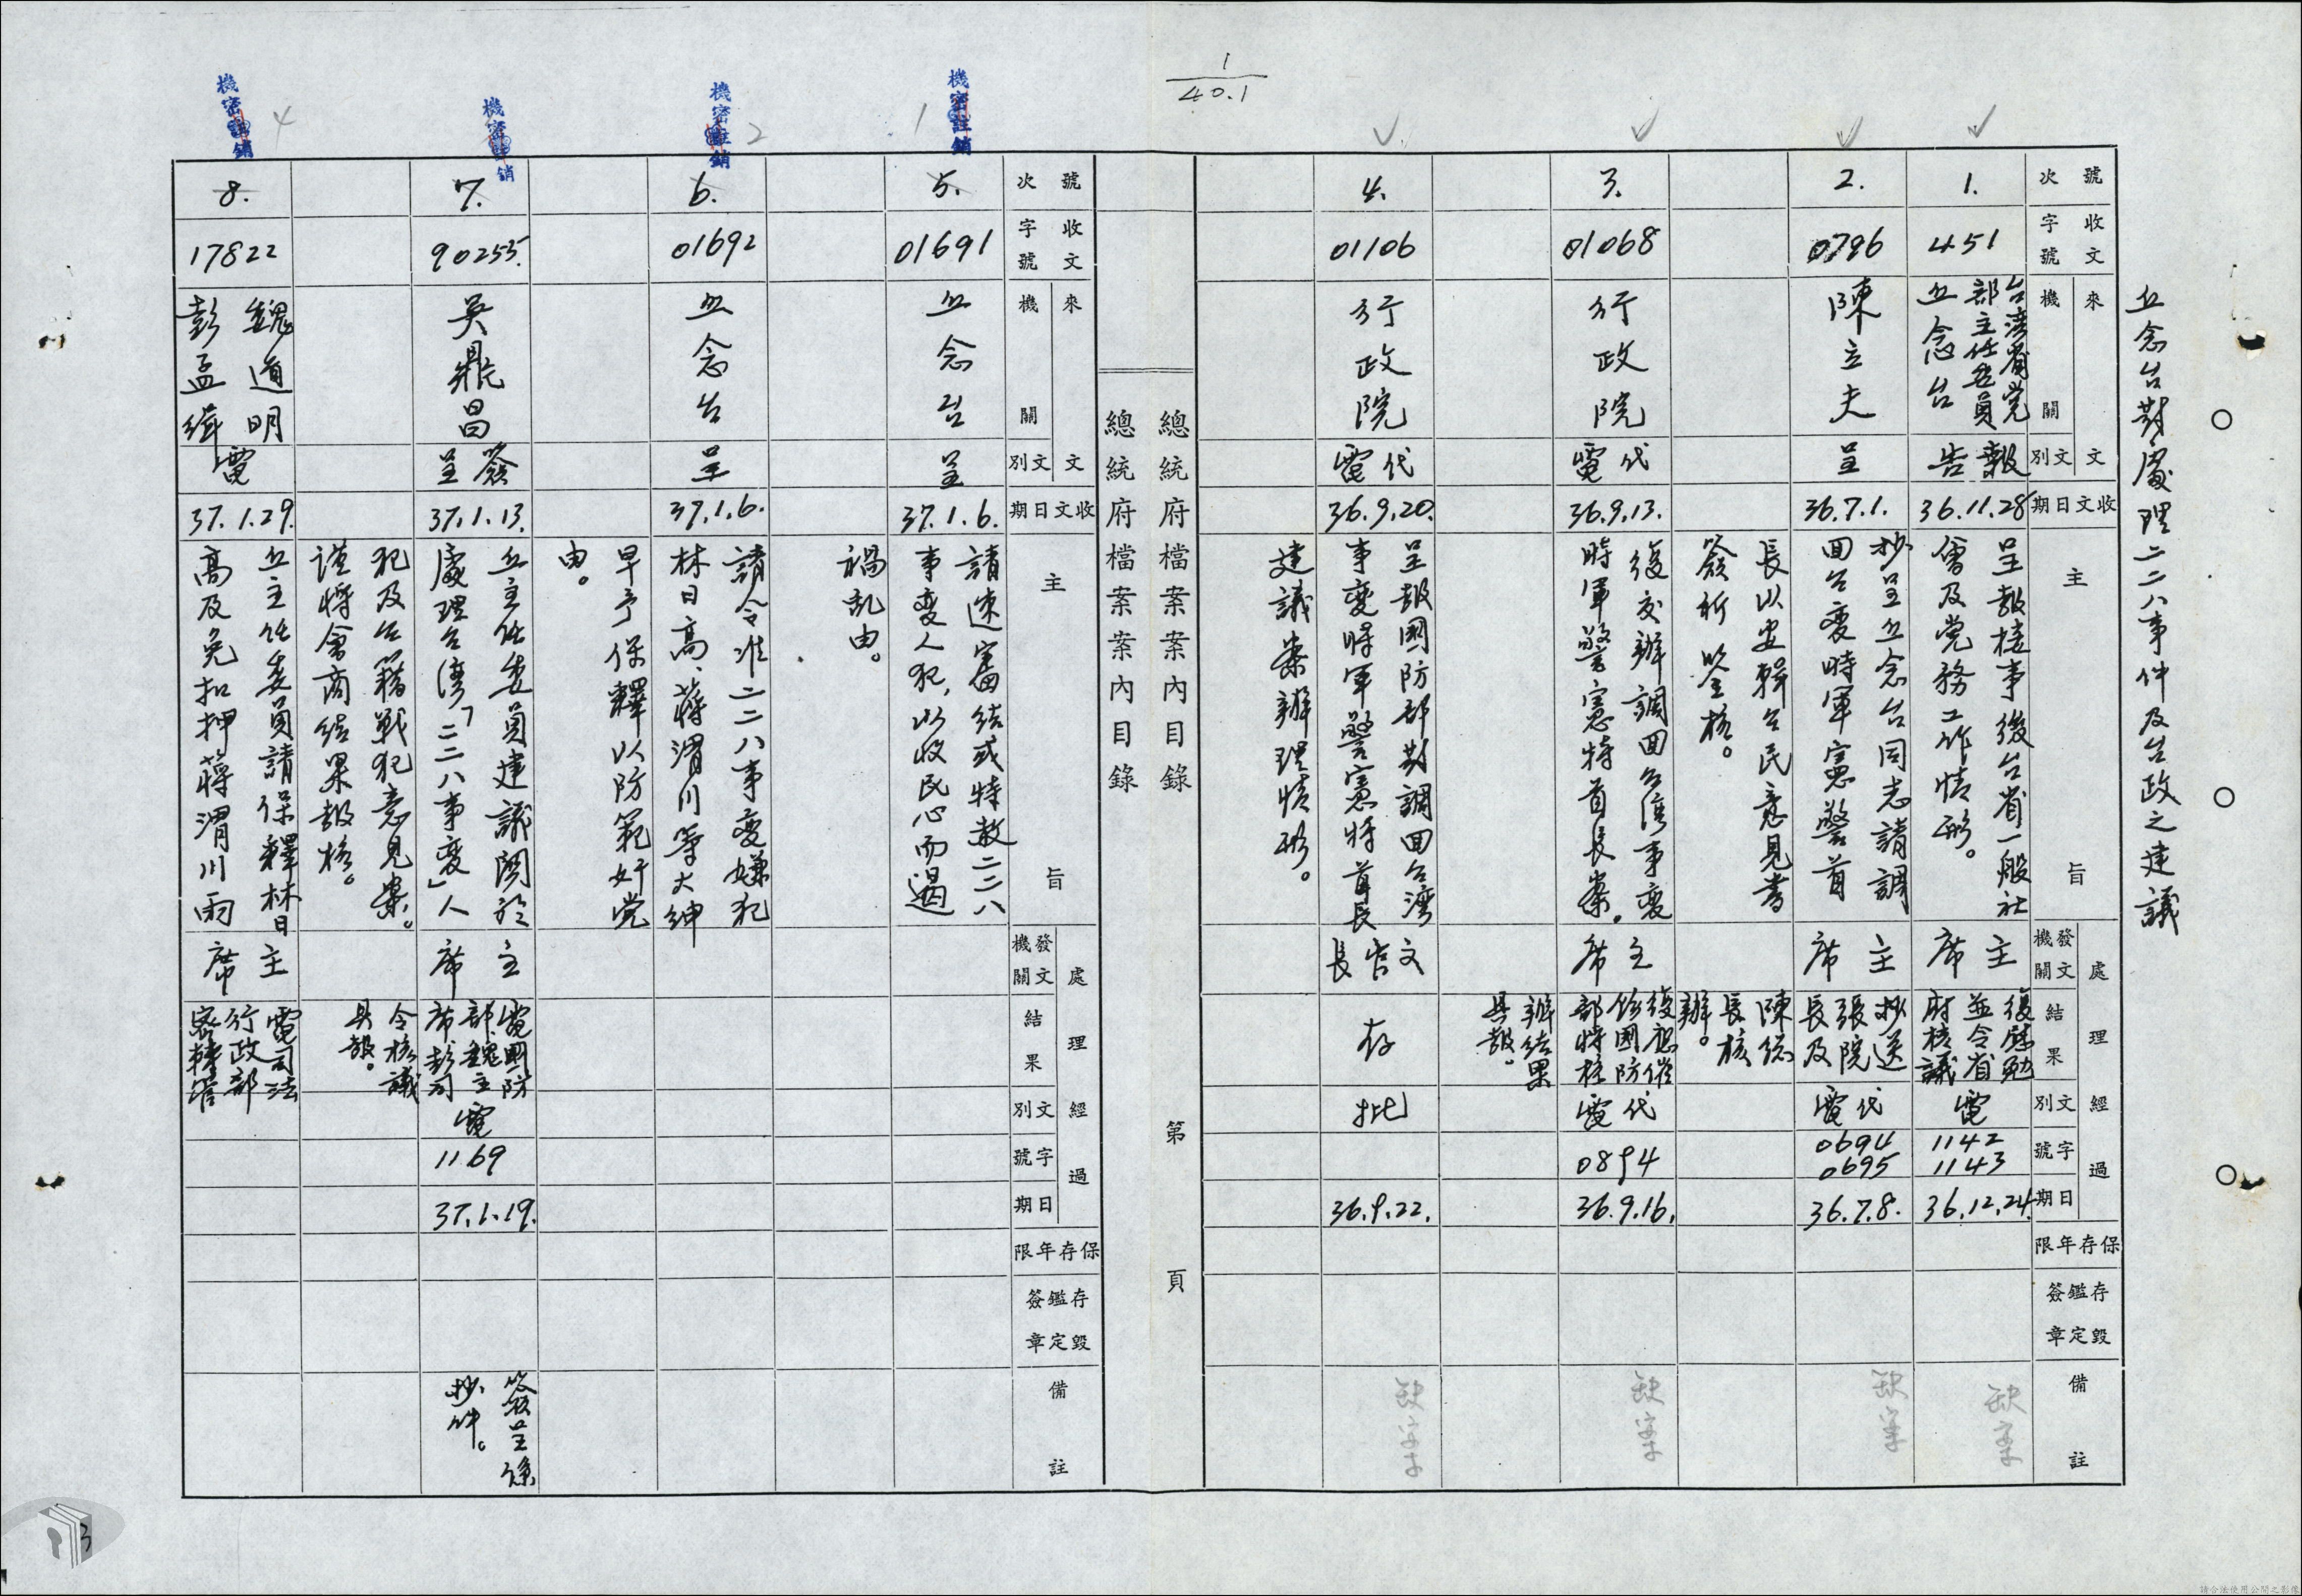 1
40.1
丘念台對處理二二八事件及台政之建議
號次
收文字號
來文機關
文別
收文日期
主旨
處理經過
發文機關
結果
文別
字號
日期
保存年限
存毀鑑定簽章
備註
1.
451
台湾省党
部主任委員
丘念台
報告
36.11.28
呈報接事後台省一般社
會及党務工作情形。
主席
復慰勉
並令省
府核議
電
1142
1143
36.12.24.
缺案
2.
0796
陳立夫
呈
36.7.1.
抄呈丘念台同志請調
回台变時軍憲警首
長以安輯台民意見書
簽祈 鑒核。
主席
抄送
張院
長及
陳総
長核
辦。
代電
0694
0695
36.7.8.
缺案
3.
01068
行政院
代電
36.9.13.
復交辦調回台湾事变
時軍警憲特首長案。
主席
復想催
飭國防
部特核
辦結果
具報。
代電
0894
36.9.16.
缺案
4.
01106
行政院
代電
36.9.20.
呈報國防部對調回台湾
事变時軍警憲特首長
建議案辦理情形。
文官長
存
批
36.9.22.
缺案
總統府檔案案內目錄
第 頁
總統府檔案案內目錄
號次
收文字號
來文機關
文別
收文日期
主旨
處理經過
發文機關
結果
文別
字號
日期
保存年限
存毀鑑定簽章
備註
機密註銷
1
5.
01691
丘念台
呈
37.1.6.
請速審結或特赦二二八
事变人犯,以收民心而遏
禍乱由。
機密註銷
2
6.
01692
丘念台
呈
37.1.6.
請令准二二八事变嫌犯
林日高、蔣渭川等大紳
早予保釋以防範奸党
由。
機密註銷
7.
90255.
吳鼎昌
簽呈
37.1.13.
丘主任委員建議関於
處理台湾「二二八事变」人
犯及台籍战犯意見案。
謹将會商結果報核。
主席
電國防
部魏主
席彭司
令核議
具報。
電
1169
37.1.19.
簽呈係
抄件。
機密註銷
4
8.
17822
魏道明
彭孟緝
電
37.1.29.
丘主任委員請保釋林日
高及免扣押蔣渭川兩
主席
電司法
行政部
密轉管
3
請合法使用公開之影像